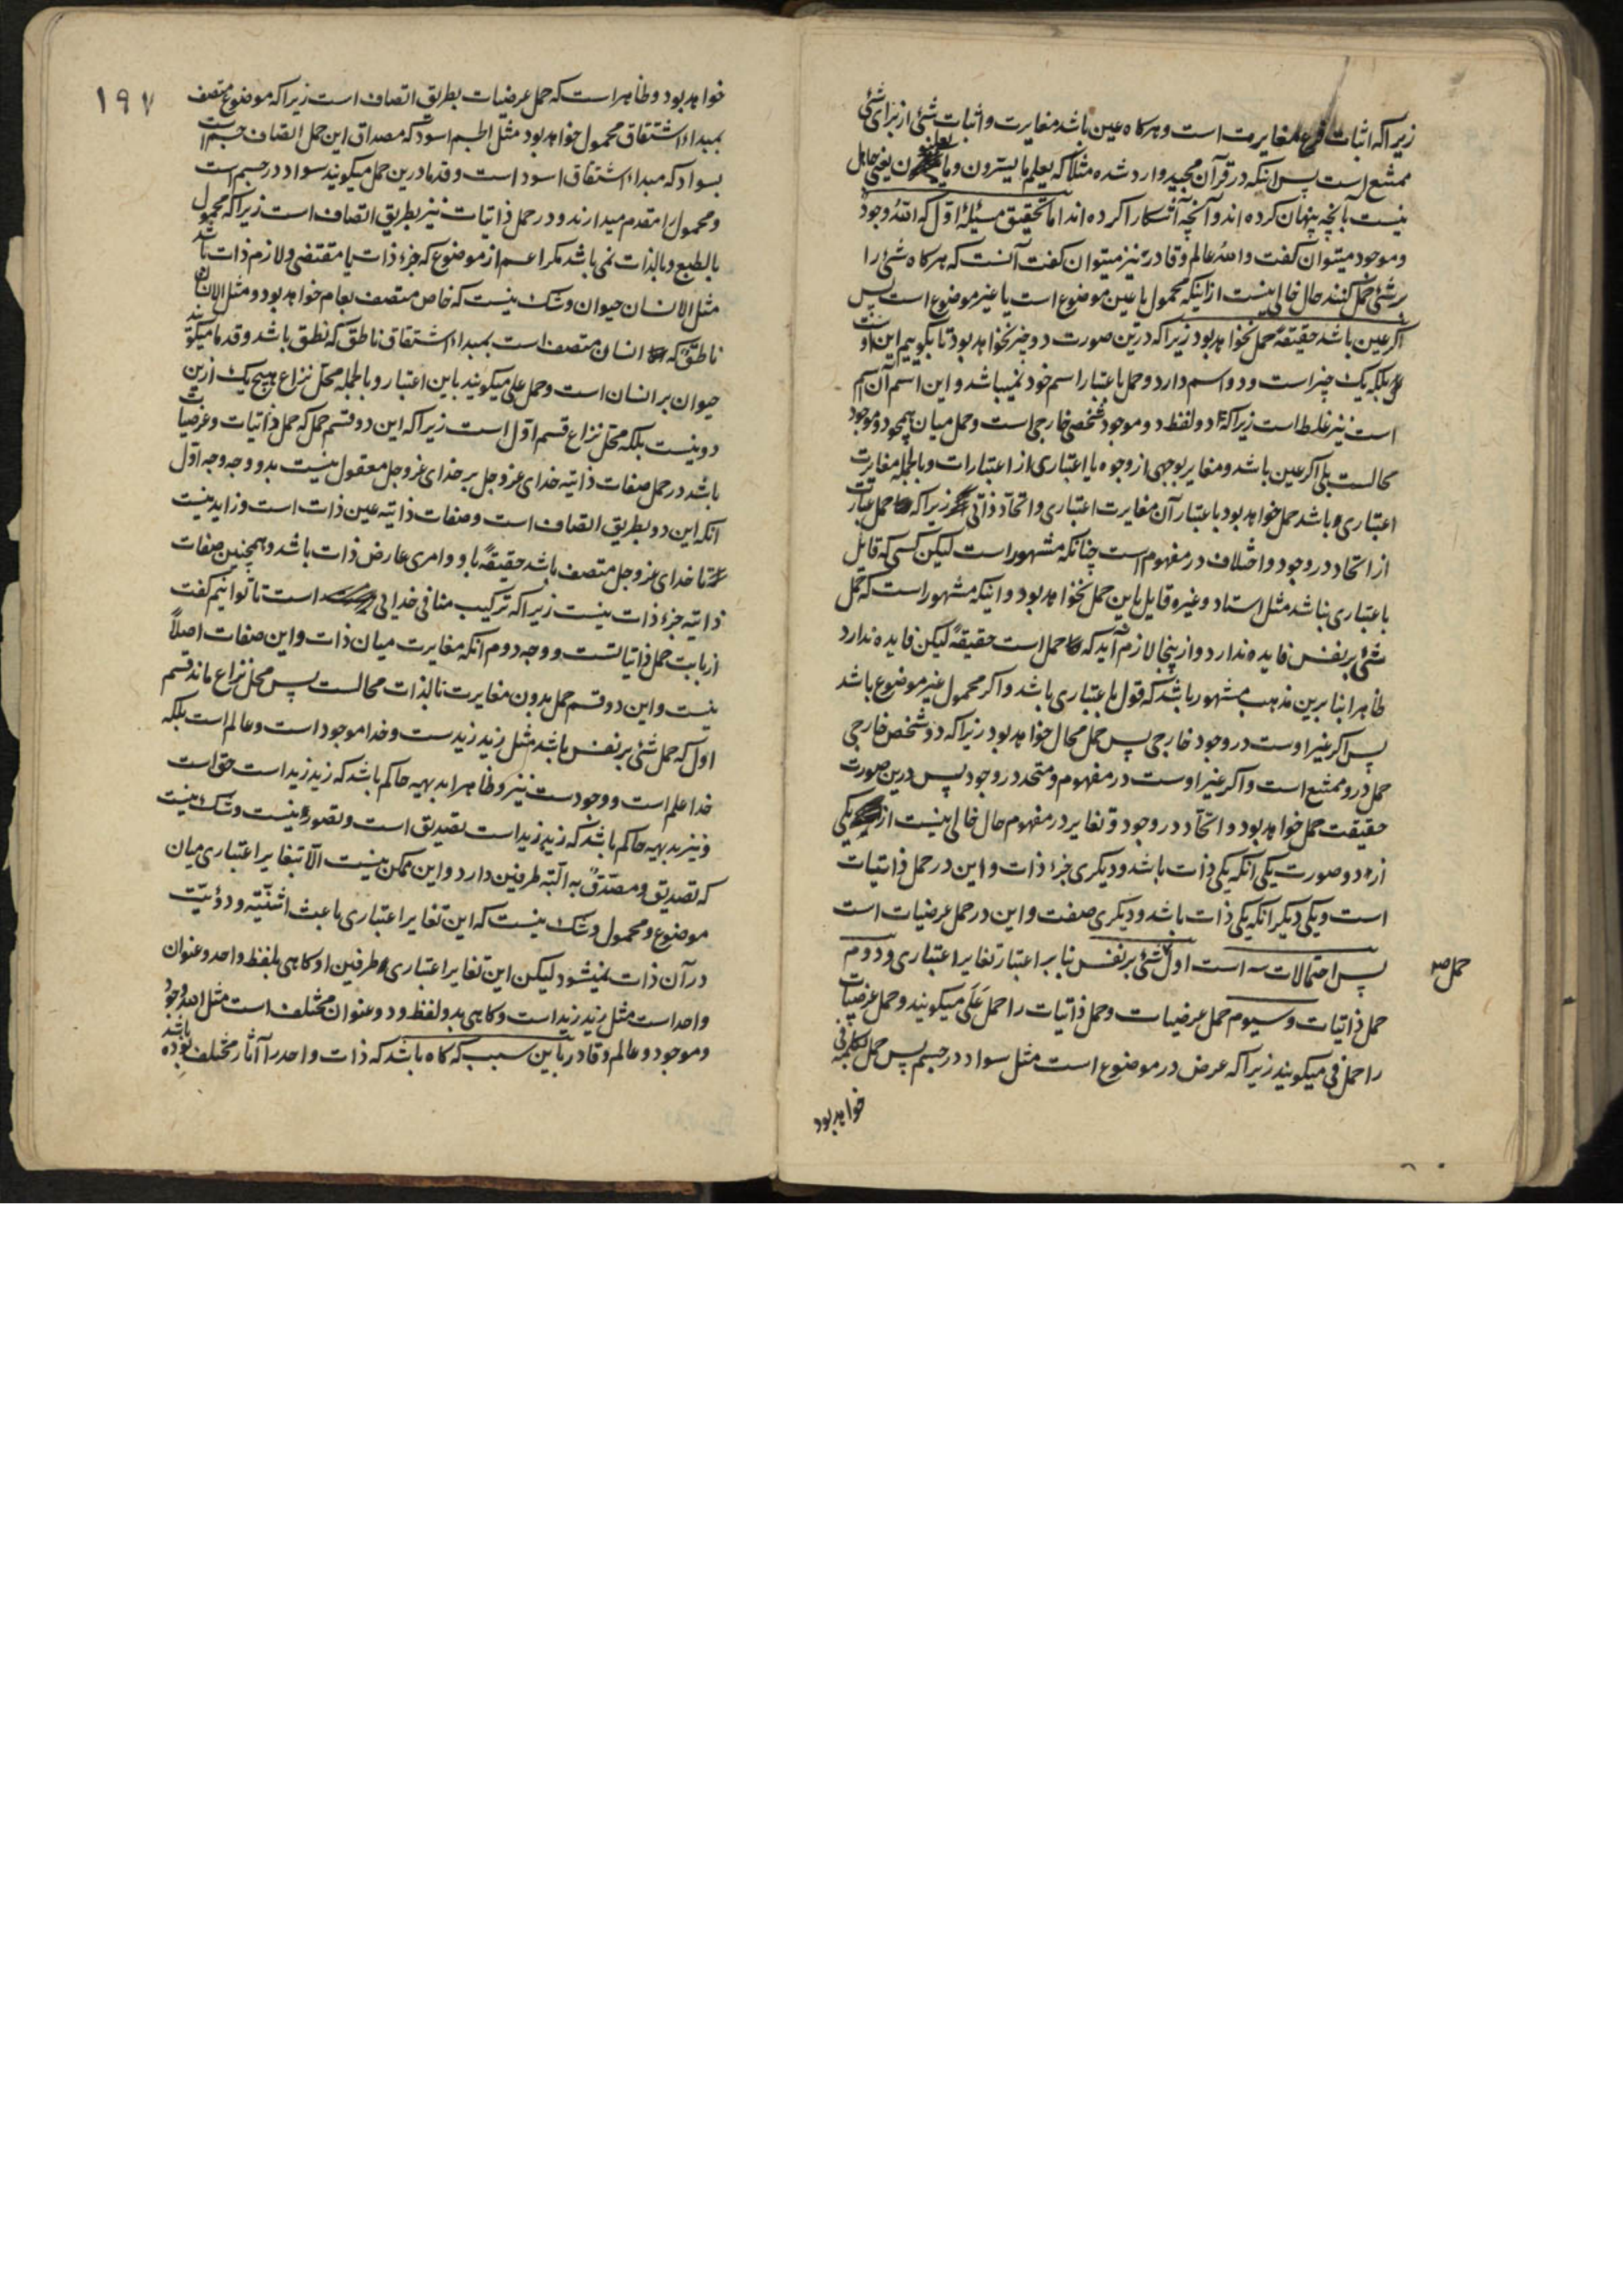 زیرا که اثبات فرع مغایرت است و هرکاه عین باشد مغایرت و اثبات شئ از برای شئ
ممتنع است پس انیکه در قرآن مجید وارد شده مثلا که یعلم ما یسترون و ما یعلنون یعنی جاهل
نیست بانچه پنهان کرده اند و آنچه آشکارا کرده اند اما تحقیق مسئلۀ اوّل که اللّه وجود
و موجود میتوان کفت واللّه عالم و قادر نیز میتوان کفت آنست که هرکاه شئ را
بر شئ حمل کنند حال خالی نیست از اینکه محمول یا عین موضوع است یا غیر موضوع است پس
اکر عین باشد حقیقةً حمل نخواهد بود زیرا که درین صورت دو چیز نخواهد بود تا بکوییم این اوست
بلکه یک چیز است و دو اسم دارد و حمل باعتبار اسم خود نمیباشد و این اسم آن اسم
است نیز غلط است زیرا که دو لفظ دو موجود شخصی خارجی است و حمل میان همچو دو موجود
محالست بلی اکر عین باشد و مغایر بوجهی از وجوه یا اعتباری از اعتبارات و بالجمله مغایرت
اعتباری باشد حمل خواهد بود باعتبار آن مغایرت اعتباری و اتحاد ذاتی زیرا که حمل عبارت
از اتحاد در وجود و اختلاف در مفهوم است چنانکه مشهور است لیکن کسی که قایل
باعتباری نباشد مثل استاد و غیره قایل باین حمل نخواهد بود و انیکه مشهور است که حمل
شئ بر نفس فایده ندارد و از ینجا لازم آید که حمل است حقیقةً لیکن فایده ندارد
ظاهرا بنا برین مذهب مشهور باشد که قول باعتباری باشد و اکر محمول غیر موضوع باشد
پس اکر غیر اوست در وجود خارجی پس حمل محال خواهد بود زیرا که دو شخص خارجی
حمل درو ممتنع است و اکر غیر اوست در مفهوم و متحد در وجود پس درین صورت
حقیقت حمل خواهد بود و اتحاد در وجود و تغایر در مفهوم حال خالی نیست از یکی
از دو صورت یکی آنکه یکی ذات باشد و دیکری جزء ذات و این در حمل ذاتیات
است و یکی دیکر آنکه یکی ذات باشد و دیکری صفت و این در حمل عرضیات است
پس احتمالات سه است اول شئ بر نفس بنا بر اعتبار تغایر اعتباری و دوم
حمل صح
حمل ذاتیات و سیوم حمل عرضیات و حمل ذاتیات را حمل عَلَی میکویند و حمل عرضیات
را حمل فی میکویند زیرا که عرض در موضوع است مثل سواد در جسم پس حمل بکلمۀ فی
خواهد بود
۱۹۷
خواهد بود و ظاهر است که حمل عرضیات بطریق اتصاف است زیرا که موضوع متصف
بمبداء اشتقاق محمول خواهد بود مثل الجسم اسود که مصداق این حمل اتصاف جسم است
بسواد که مبداء اشتقاق اسود است و قدما درین حمل میکویند سواد در جسم است
و محمول را مقدم میدارند و در حمل ذاتیات نیز بطریق اتصاف است زیرا که محمول
بالطبع و بالذات نمی باشد مکر اعم از موضوع که جزء ذات یا مقتضی و لازم ذات باشد
مثل الانسان حیوان و شک نیست که خاص متصف بعام خواهد بود و مثل الانسان
ناطق که انسان متصف است بمبداء اشتقاق ناطق که نطق باشد و قدما میکویند
حیوان بر انسان است و حمل علی میکویند باین اعتبار و بالجمله محل نزاع هیچ یک ازین
دو نیست بلکه محل نزاع قسم اوّل است زیرا که این دو قسم حمل که حمل ذاتیات و عرضیات
باشد در حمل صفات ذاتیه خدای عز و جل بر خدای عز و جل معقول نیست بدو وجه وجه اوّل
آنکه این دو بطریق اتصاف است و صفات ذاتیه عین ذات است و زاید نیست
تا خدای عز و جل متصف باشد حقیقةً باو و امری عارض ذات باشد و همچنین صفات
ذاتیه جزء ذات نیست زیرا که ترکیب منافی خدایی است تا توانیم کفت
از بابت حمل ذاتیاتست و وجه دوم آنکه مغایرت میان ذات و این صفات اصلاً
نیست و این دو قسم حمل بدون مغایرت بالذات محالست پس محل نزاع ماند قسم
اول که حمل شئ بر نفس باشد مثل زید زیدست و خدا موجود است و عالم است بلکه
خدا علم است و وجودست نیز و ظاهرا بدیهیه حاکم باشد که زید زید است حق است
و نیز بدیهیه حاکم باشد که زید زید است تصدیق است و تصور نیست و شک نیست
که تصدیق و مصدّق به البته طرفین دارد و این ممکن نیست الّا بتغایر اعتباری میان
موضوع و محمول و شک نیست که این تغایر اعتباری باعث اثنیّنیه و دوئیّت
در آن ذات نمیشود لیکن این تغایر اعتباری طرفین او کاهی بلفظ واحد و عنوان
واحد است مثل زید زید است و کاهی بدو لفظ و دو عنوان مختلف است مثل اللّه وجود
و موجود و عالم و قادر باین سبب که کاه باشد که ذات واحد را آثار مختلف بوده باشد